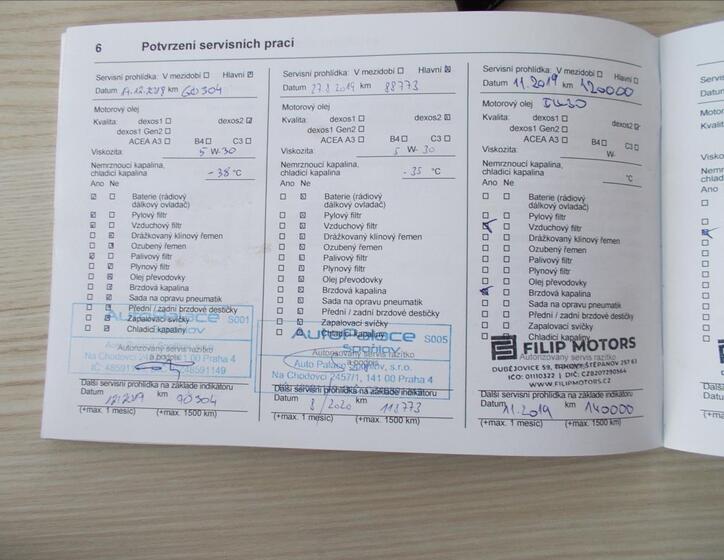 6 Potvrzení servisních prací
Servisní prohlídka: V mezidobí Hlavní
Datum 17.12.2018 km 60304
Motorový olej
Kvalita: dexos1 dexos2
dexos1 Gen2
ACEA A3 B4 C3
Viskozita: 5 W-30
Nemrznoucí kapalina,
chladicí kapalina -38 °C
Ano Ne
Baterie (rádiový
dálkový ovladač)
Pylový filtr
Vzduchový filtr
Drážkovaný klínový řemen
Ozubený řemen
Palivový filtr
Plynový filtr
Olej převodovky
Brzdová kapalina
Sada na opravu pneumatik
Přední / zadní brzdové destičky
Zapalovací svíčky
Chladicí kapaliny
AutoPalace S001
Spořilov
Autorizovaný servis razítko
a podpis
Na Chodovci 1 00 Praha 4
Další servisní prohlídka na základě indikátoru
Datum 12.2019 km 90304
(+max. 1 měsíc) (+max. 1500 km)
Servisní prohlídka: V mezidobí Hlavní
Datum 27.8.2019 km 88773
Motorový olej
Kvalita: dexos1 dexos2
dexos1 Gen2
ACEA A3 B4 C3
Viskozita: 5 W-30
Nemrznoucí kapalina,
chladicí kapalina -35 °C
Ano Ne
Baterie (rádiový
dálkový ovladač)
Pylový filtr
Vzduchový filtr
Drážkovaný klínový řemen
Ozubený řemen
Palivový filtr
Plynový filtr
Olej převodovky
Brzdová kapalina
Sada na opravu pneumatik
Přední / zadní brzdové destičky
Zapalovací svíčky
Chladicí kapaliny
AutoPalace S005
Spořilov
Autorizovaný servis razítko
a podpis
Auto Palace Spořilov, s.r.o.
Na Chodovci 2457/1, 141 00 Praha 4
Další servisní prohlídka na základě indikátoru
Datum 8/2020 km 118773
(+max. 1 měsíc) (+max. 1500 km)
Servisní prohlídka: V mezidobí Hlavní
Datum 11.2019 km 120000
Motorový olej
Kvalita: dexos1 dexos2
dexos1 Gen2
ACEA A3 B4 C3
Viskozita: W-
Nemrznoucí kapalina,
chladicí kapalina °C
Ano Ne
Baterie (rádiový
dálkový ovladač)
Pylový filtr
Vzduchový filtr
Drážkovaný klínový řemen
Ozubený řemen
Palivový filtr
Plynový filtr
Olej převodovky
Brzdová kapalina
Sada na opravu pneumatik
Přední / zadní brzdové destičky
Zapalovací svíčky
Chladicí kapaliny
FILIP MOTORS
Autorizovaný servis razítko
WWW.FILIPMOTORS.CZ
Další servisní prohlídka na základě indikátoru
Datum 11.2019 km 140000
(+max. 1 měsíc) (+max. 1500 km)